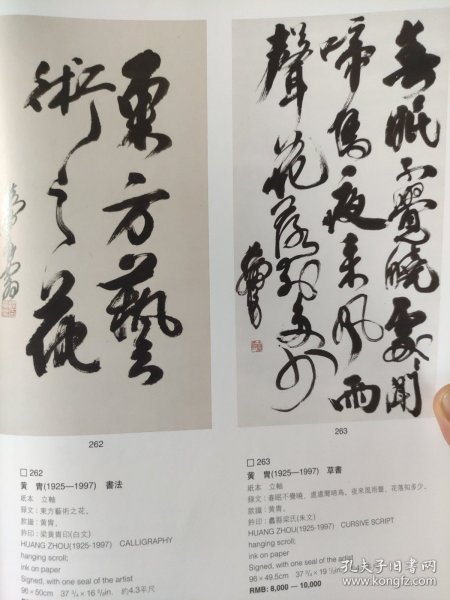 東方藝
術之花
黃胄
春眠不覺曉處〻聞
啼鳥夜來風雨
聲花落知多少
黃胄
262
263
□262
黃 胄(1925—1997) 書法
紙本 立軸
錄文:東方藝術之花。
款識:黃胄。
鈐印:梁黃胄印(白文)
HUANG ZHOU(1925-1997) CALLIGRAPHY
hanging scroll;
ink on paper
Signed, with one seal of the artist
96×50cm 37 ¾×16 in. 約4.3平尺
□263
黃 胄(1925—1997) 草書
紙本 立軸
錄文:春眠不覺曉,處處聞啼鳥。夜來風雨聲,花落知多少。
款識:黃胄。
鈐印:蠡縣梁氏(朱文)
HUANG ZHOU(1925-1997) CURSIVE SCRIPT
hanging scroll;
ink on paper
Signed, with one seal of the artist
96×49.5cm 37 ¾×19
RMB: 8,000 — 10,000
孔夫子旧书网